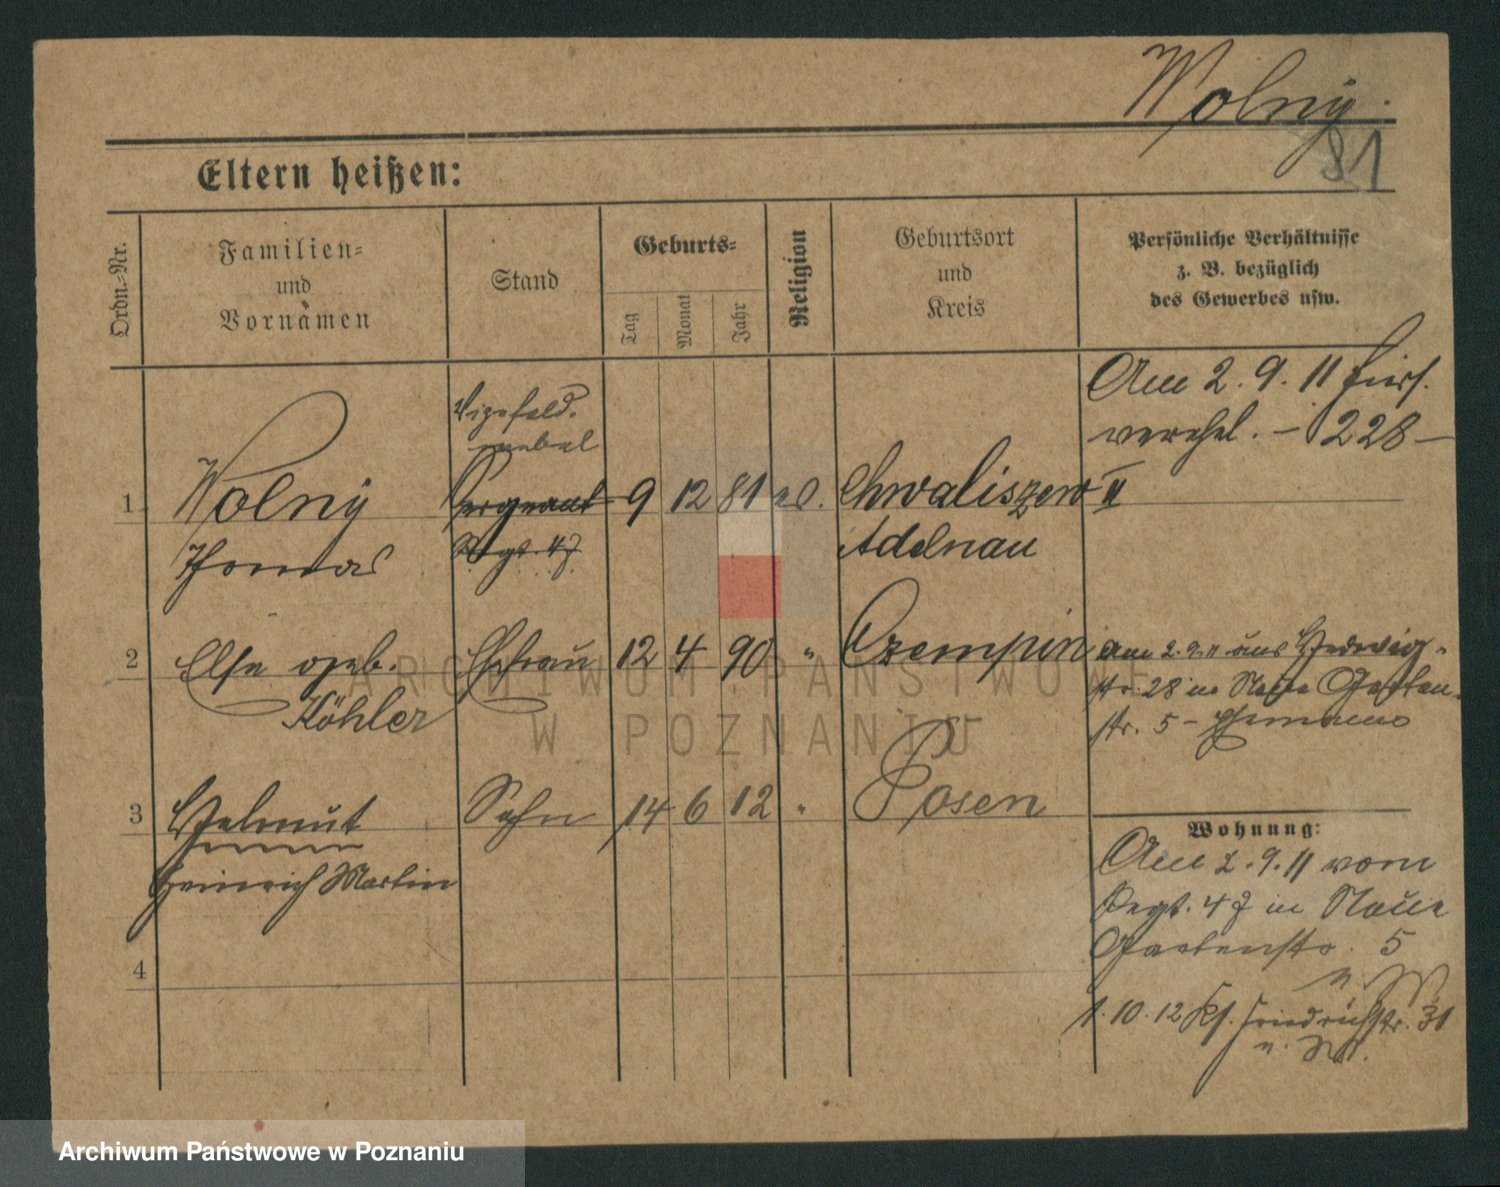 Wolny.
81
Eltern heißen:
Ordn.-Nr.
Familien-
und
Vornamen
Stand
Geburts-
Tag
Monat
Jahr
Religion
Geburtsort
und
Kreis
Persönliche Verhältnisse
z. B. bezüglich
des Gewerbes usw.
Am 2. 9. 11 hier
verehel. – 228 –
1.
Wolny
Thomas
Vizefeld-
webel
Sergeant
Regt. 47
9 12 81
Chwaliszew II
Adelnau
2
Else geb.
Köhler
Ehefrau
12 4 90 "
Czempin
am 2.9.11 aus Hedwig-
str. 28 in Neue Garten-
str. 5 – Ehemann
3
Helmut
Heinrich Martin
Sohn
14 6 12 "
Posen
4
Wohnung:
Am 2. 9. 11 vom
Regt. 47 in Neue
Gartenstr. 5
1. 10. 12 Ks. Friedrichstr. 31
ARCHIWUM PAŃSTWOWE
W POZNANIU
Archiwum Państwowe w Poznaniu